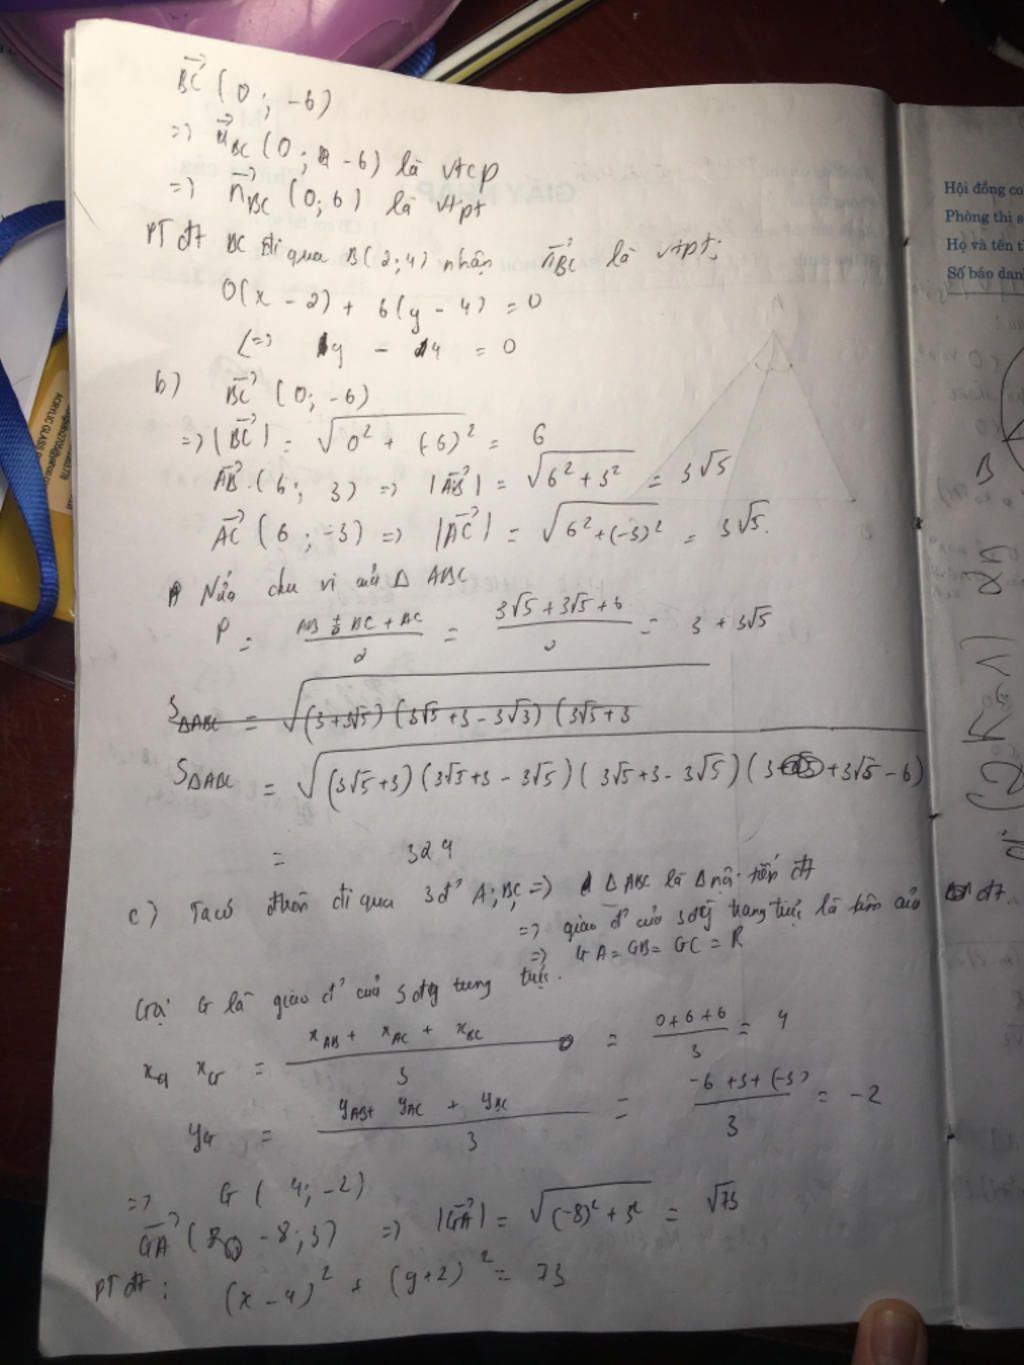 BC→ (0; -6)
=> u→BC (0; -6) là vtcp
=> n→BC (0; 6) là vtpt
PT đt BC đi qua B(2;4) nhận n→BC là vtpt:
0(x - 2) + 6(y - 4) = 0
<=> 1y - 4 = 0
b) BC→ (0; -6)
=> |BC→| = √(0² + (-6)²) = 6
AB→ (6; 3) => |AB→| = √(6² + 3²) = 3√5
AC→ (6; -3) => |AC→| = √(6² + (-3)²) = 3√5.
Nửa chu vi của Δ ABC
P = (AB + BC + AC)/2 = (3√5 + 3√5 + 6)/2 = 3 + 3√5
SΔABC = √(3+3√5) (3√5 + 3 - 3√3) (3√5 + 3
SΔABC = √(3√5+3) (3√5+3 - 3√5) (3√5+3 - 3√5) (3 + 3√5 - 6)
= 324
c) Ta có đtròn đi qua 3 đ' A; B; C => Δ ABC là Δ nội tiếp đt
=> giao đ' của 3 đg trung trực là tâm của đt.
=> GA = GB = GC = R
Gọi G là giao đ' của 3 đg trung trực.
xG = (xAB + xAC + xBC)/3 = (0 + 6 + 6)/3 = 4
yG = (yAB + yAC + yBC)/3 = (-6 + 3 + (-3))/3 = -2
=> G (4; -2)
GA→ (-8; 3) => |GA→| = √((-8)² + 3²) = √73
PT đt: (x - 4)² + (y + 2)² = 73
GIẤY NHÁP
Hội đồng co
Phòng thi s
Họ và tên t
Số báo dan
B